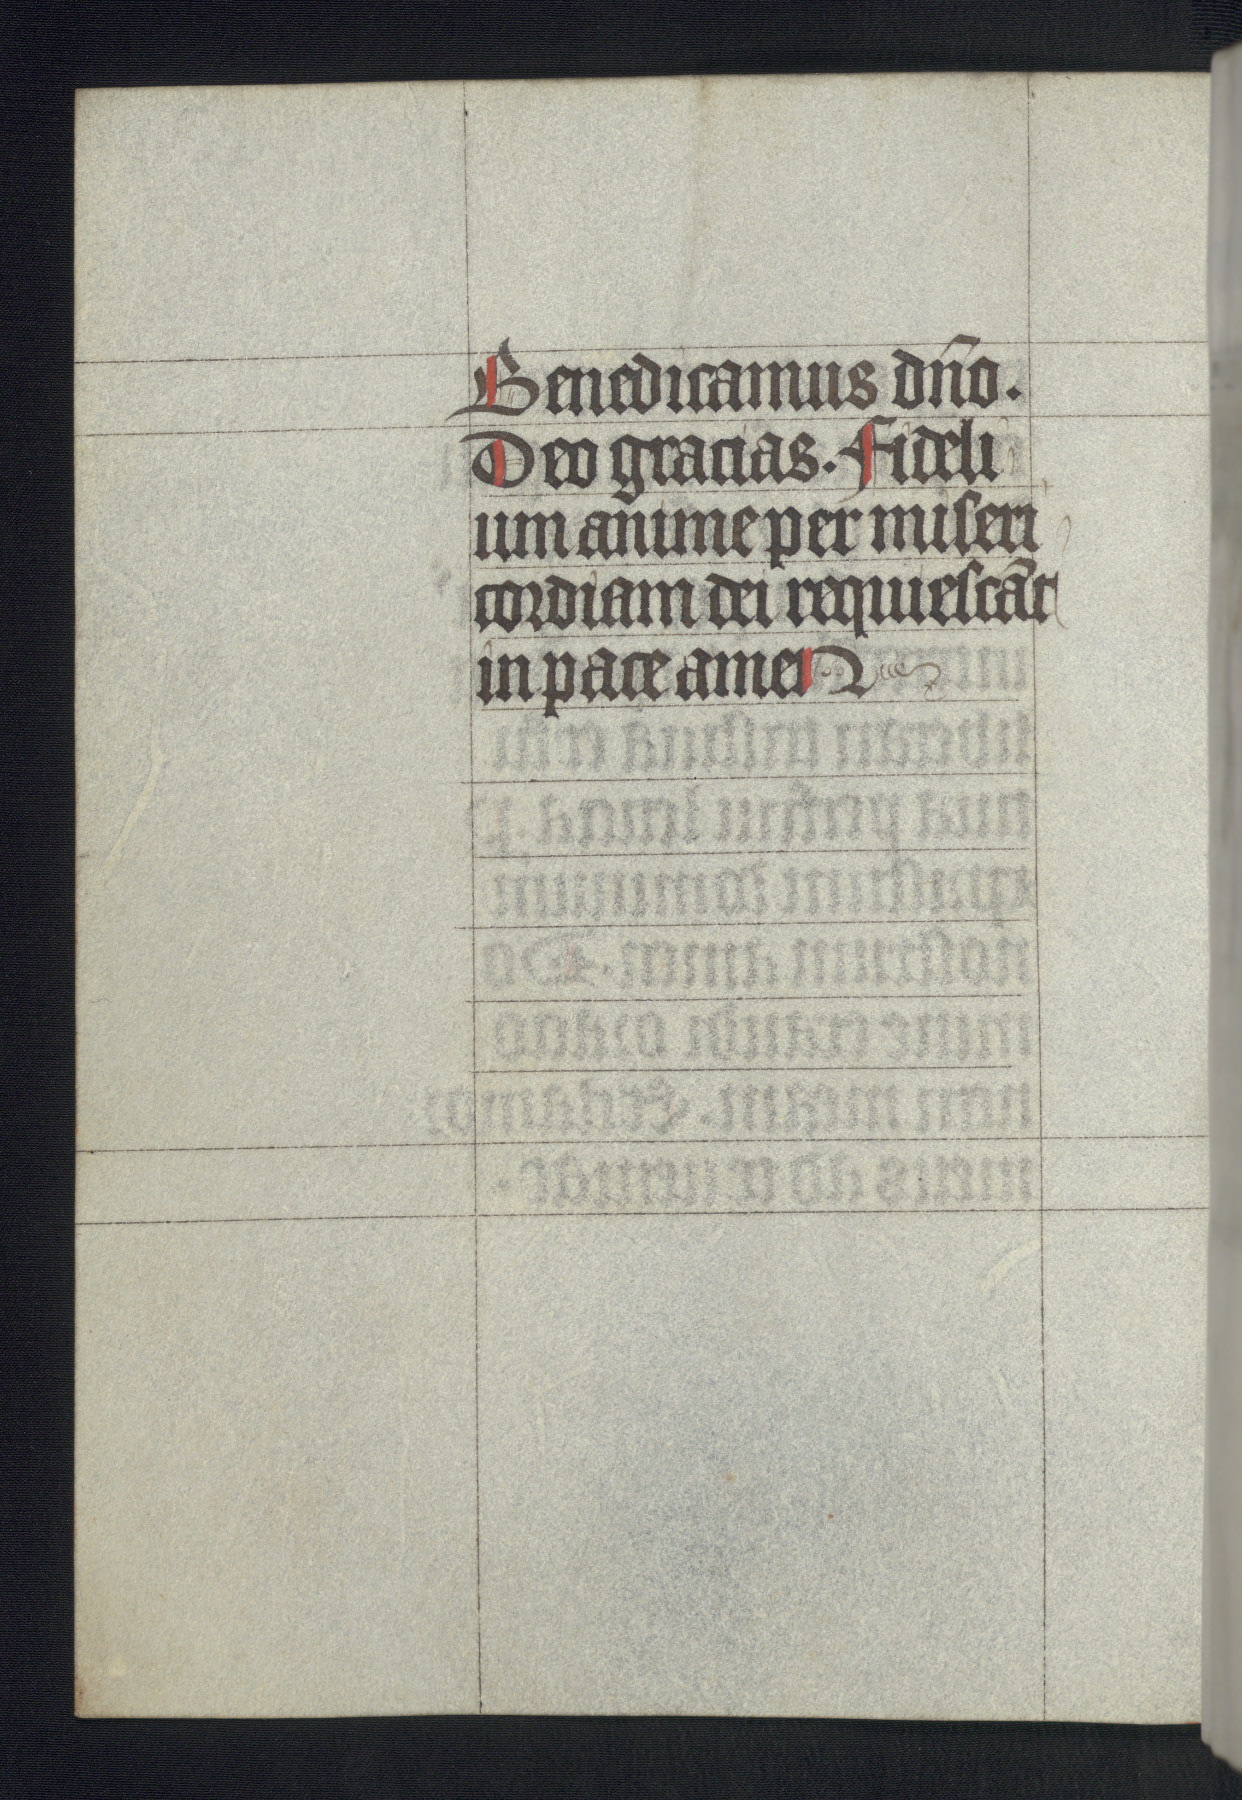 Benedicamus dn̄o.
Deo gracias. Fideli
um anime per miseri
cordiam dei requiescāt
in pace amen